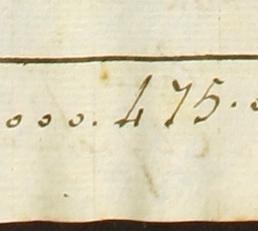 ooo. 475.